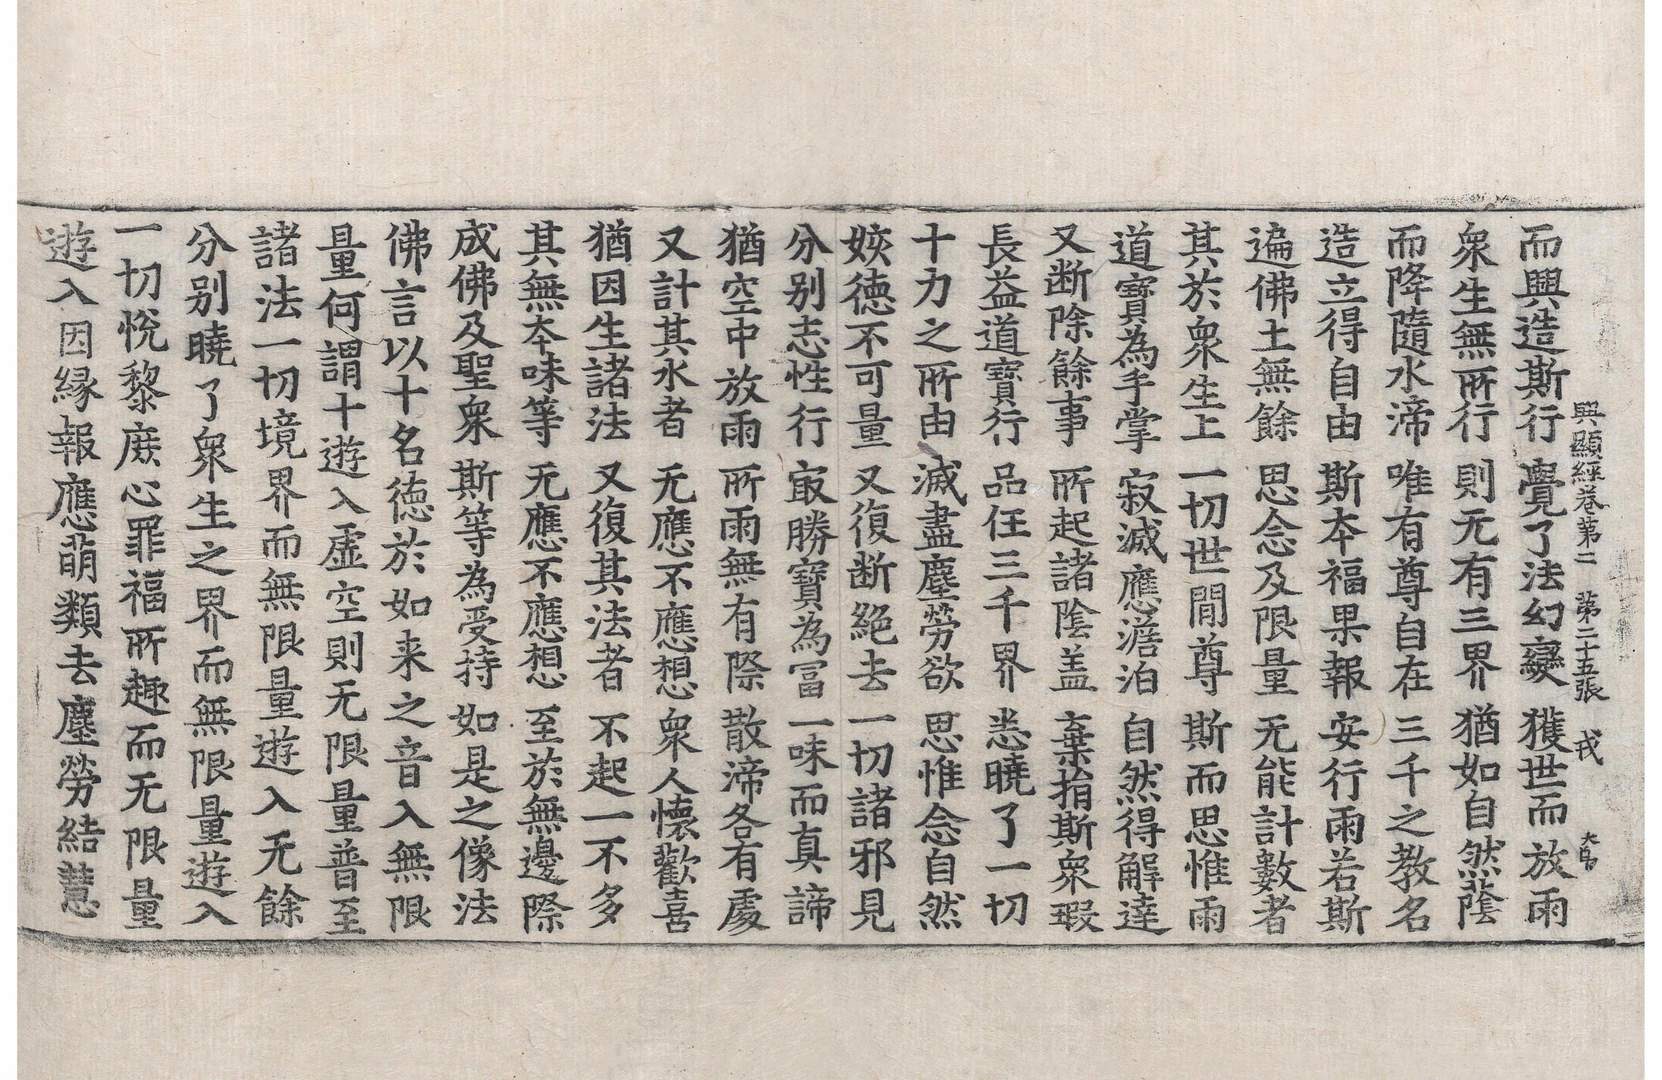 興顯經卷第二　第二十五張　戎　大㠯
而興造斯行　覺了法幻變　獲世而放雨
衆生無所行　則无有三界　猶如自然蔭
而降隨水渧　唯有尊自在　三千之教名
造立得自由　斯本福果報　安行雨若斯
遍佛土無餘　思念及限量　无能計數者
其於衆生上　一切世閒尊　斯而思惟雨
道寶為手掌　寂滅應澹泊　自然得解達
又断除餘事　所起諸陰盖　棄捐斯衆瑕
長益道寶行　品任三千界　悉曉了一切
十力之所由　滅盡塵勞欲　思惟念自然
姟德不可量　又復断絕去　一切諸邪見
分别志性行　㝡勝寶為冨　一味而真諦
猶空中放雨　所雨無有際　散渧各有處
又計其水者　无應不應想　衆人懷歡喜
猶因生諸法　又復其法者　不起一不多
其無本味等　无應不應想　至於無邊際
成佛及聖衆　斯等為受持　如是之像法
佛言以十名德於如来之音入無限
量何謂十遊入虛空則无限量普至
諸法一切境界而無限量遊入无餘
分别曉了衆生之界而無限量遊入
一切悅黎庶心罪福所趣而无限量
遊入因緣報應萌類去塵勞結慧